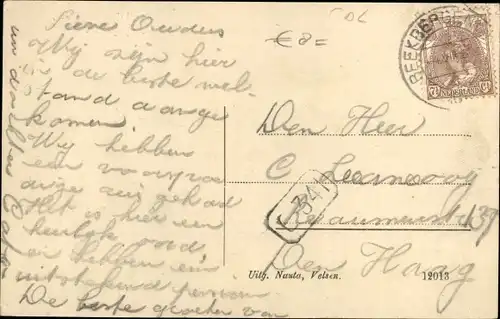 Lieve Ouders
Wij zijn hier
in de beste wel-
stand aange
komen.
Wij hebben
een voorspoe
dige reis gehad
Het is hier een
heerlijk oord,
en hebben een
uitstekend pension
De beste groeten van
en
DL
€ 8=
BEEKBERGEN
7½ NEDERLAND 7½
Den Heer
C
334
137
Den Haag
Uitg. Nauta, Velsen.
12013